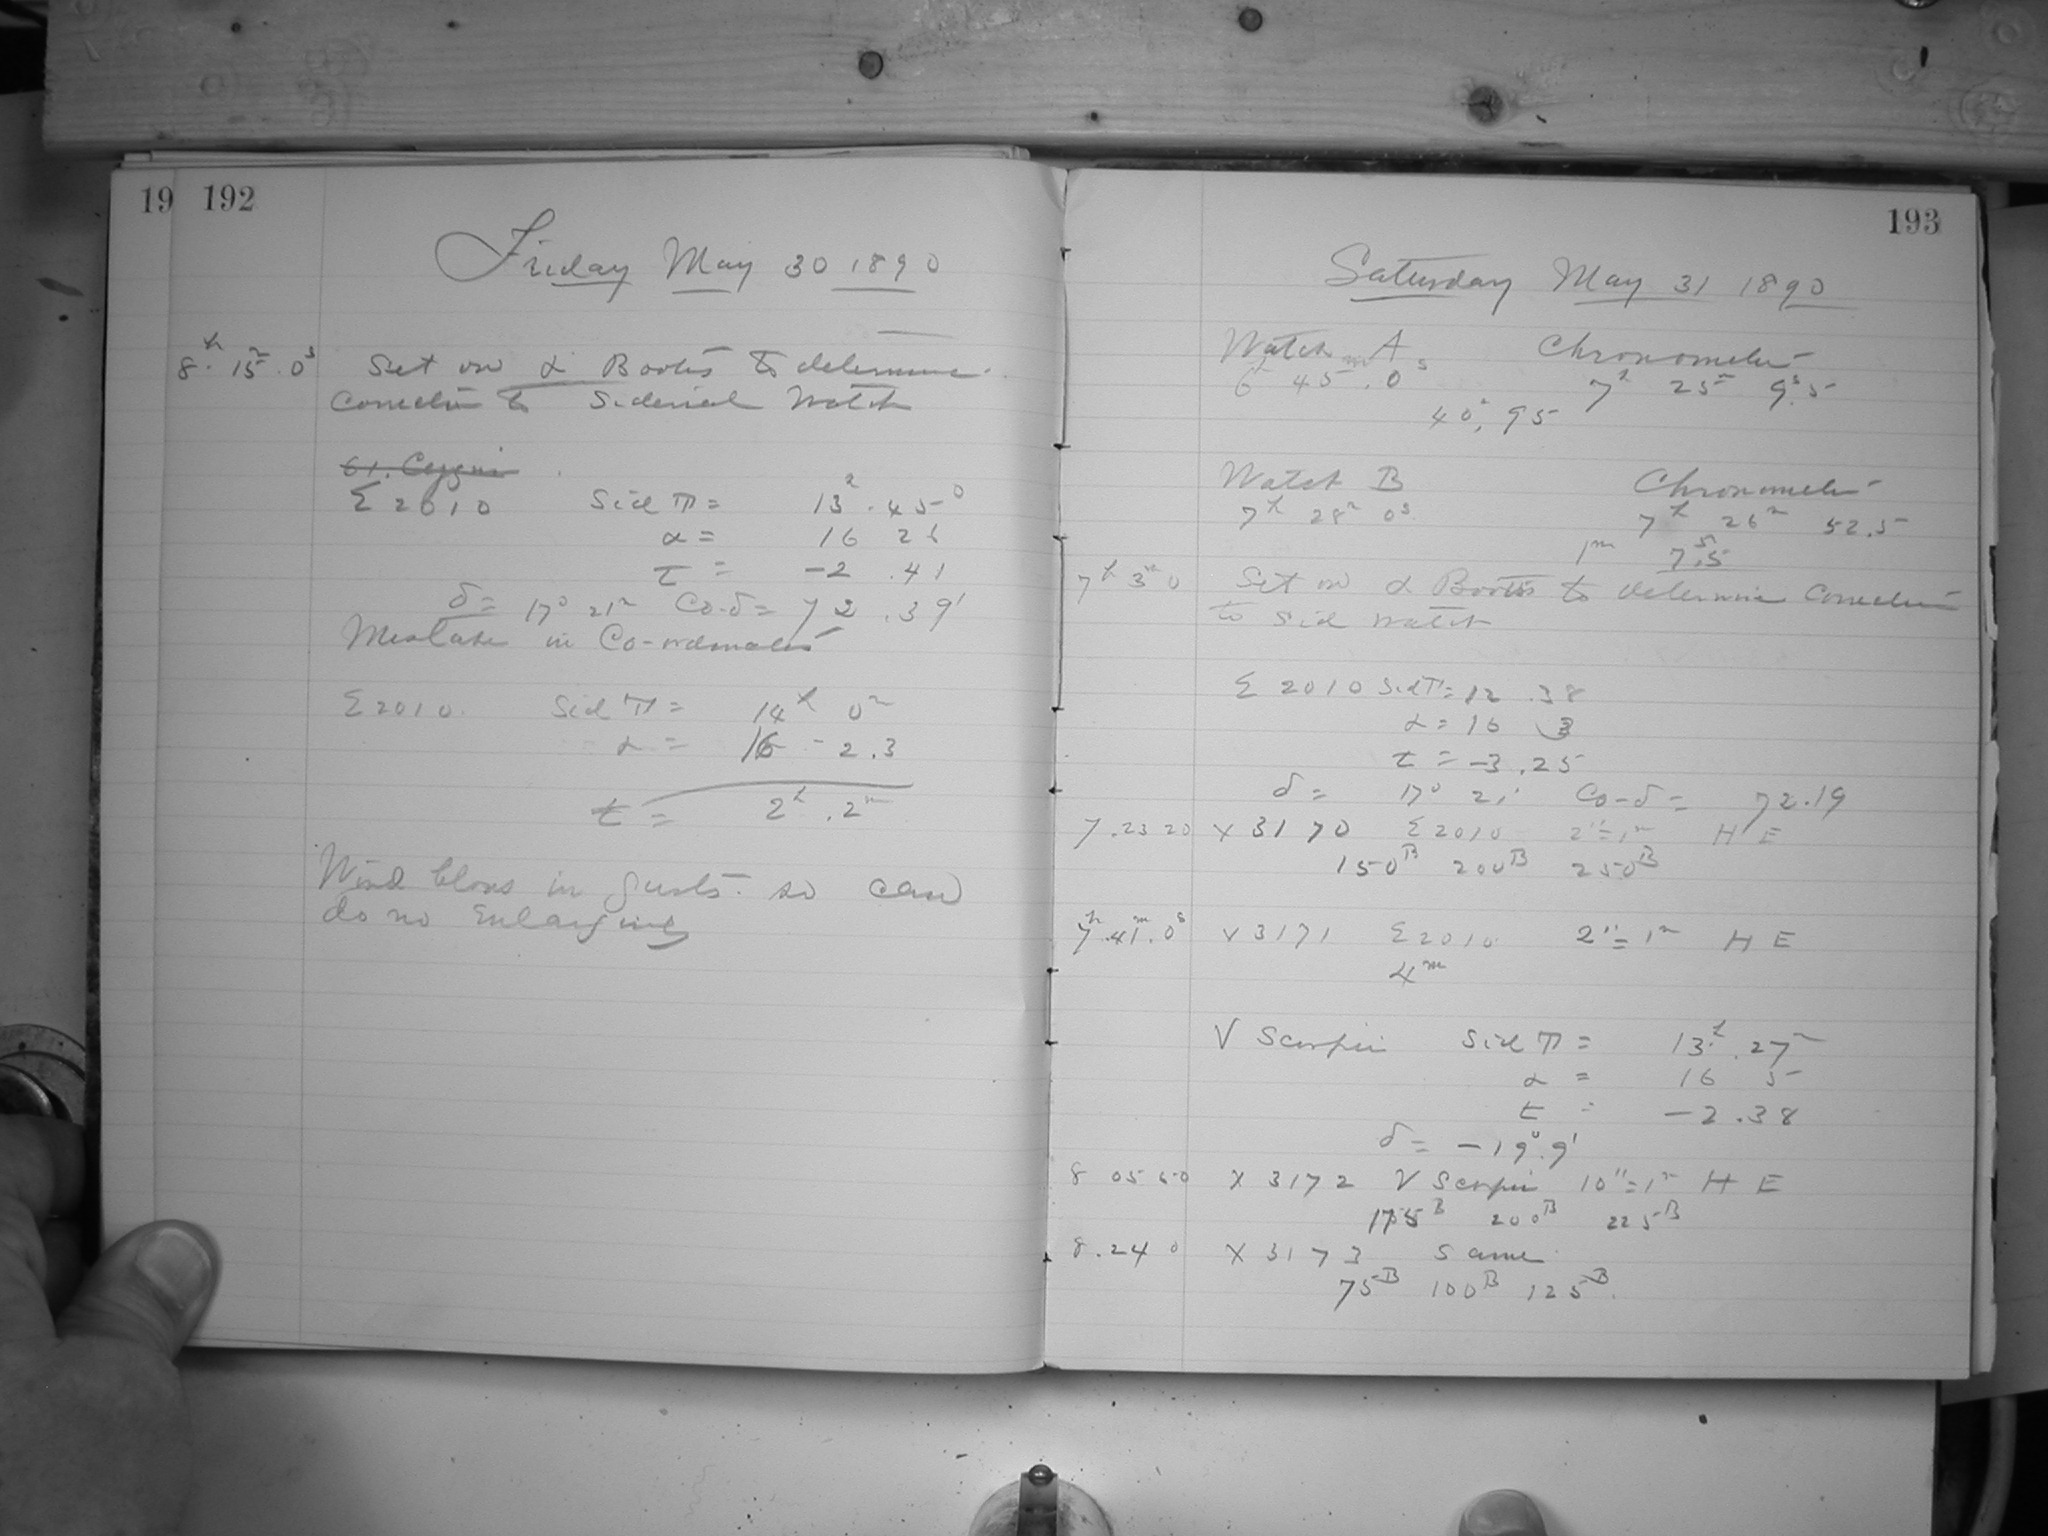 19 192
Friday May 30 1890
8h 15m 0s Set on α Bootis to determine
correction to Sidereal Watch
61. Cygni
Σ 2010 Sid T = 13h .45 0
α = 16 26
τ = -2 .41
δ = 17° 21m Co-δ = 72 .39'
Mistake in Co-ordinates
Σ 2010. Sid T = 14h 0m
α = 16 - 2.3
t = 2h .2m
Wind blows in gusts. so can
do no Enlarging
193
Saturday May 31 1890
Watch A Chronometer
6h 45m .0s 7h 25m 9s.5
40s, 95
Watch B Chronometer
7h 28m 0s. 7h 26m 52.5
1m 7s.5
7h 3m 0 Set on α Bootis to determine correction
to Sid Watch
Σ 2010 Sid T = 12 .38
α = 16 3
t = -3 .25
δ = 17° 21' Co-δ = 72.19
7.23 20 X 3170 Σ 2010 2"=1m H E
150B 200B 250B
7h.41m.0s X 3171 Σ 2010 2"=1m H E
4m
V Scorpii Sid T = 13h .27m
α = 16 5
t = -2 .38
δ = -19° 9'
8 05 50 X 3172 V Scorpii 10"=1m H E
175B 200B 225B
8.24 0 X 3173 Same
75B 100B 125B.